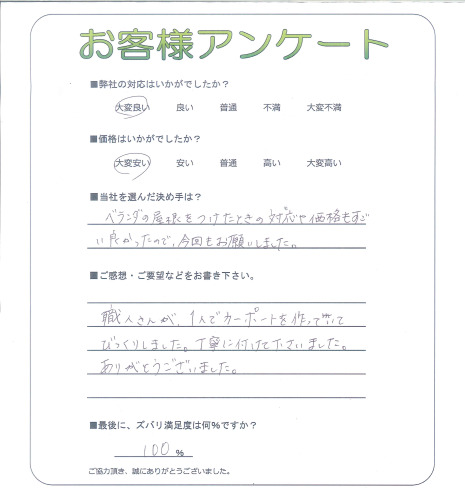 お客様アンケート
■弊社の対応はいかがでしたか？
大変良い 良い 普通 不満 大変不満
■価格はいかがでしたか？
大変安い 安い 普通 高い 大変高い
■当社を選んだ決め手は？
ベランダの屋根をつけたときの対応や価格もすご
い良かったので、今回もお願いしました。
■ご感想・ご要望などをお書き下さい。
職人さんが、1人でカーポートを作って
びっくりしました。丁寧に付けて下さいました。
ありがとうございました。
■最後に、ズバリ満足度は何％ですか？
100 %
ご協力頂き、誠にありがとうございました。